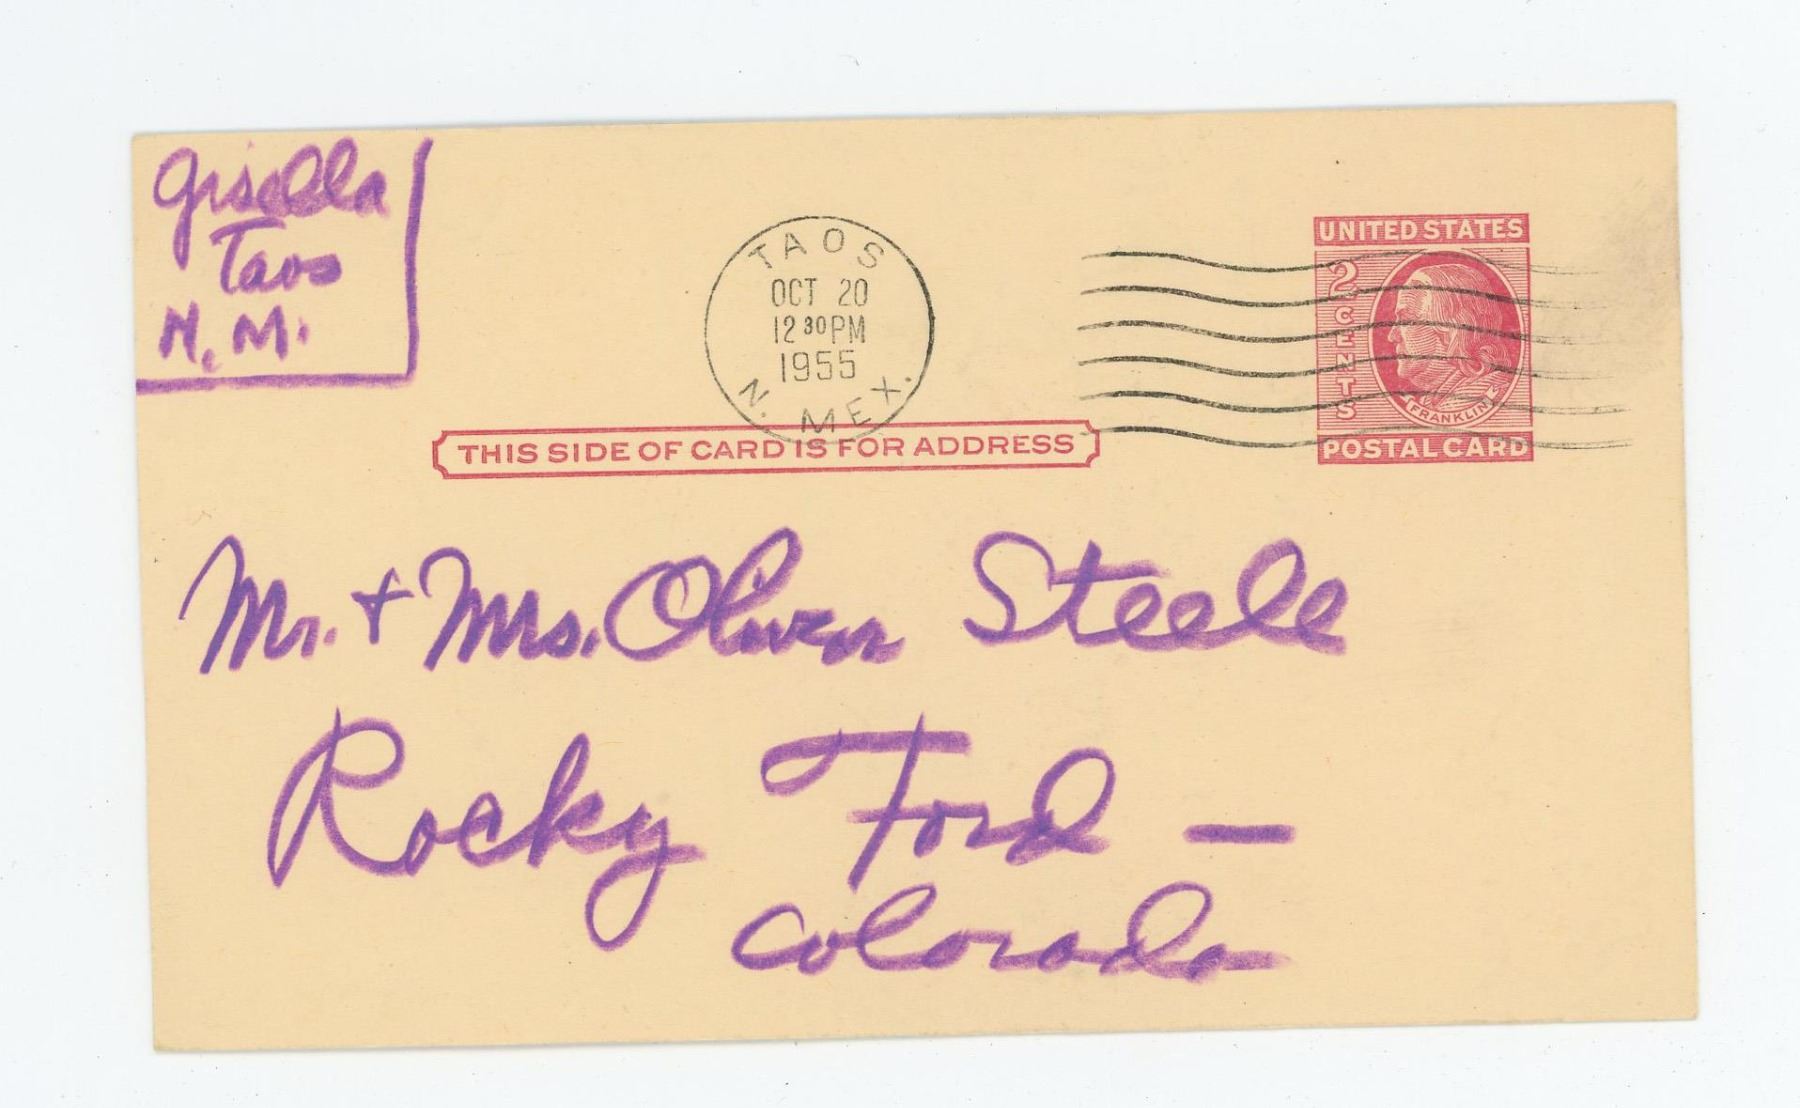 Gisella
Taos
N.M.
TAOS
OCT 20
12 30 PM
1955
N. MEX.
UNITED STATES
2 CENTS
FRANKLIN
POSTAL CARD
THIS SIDE OF CARD IS FOR ADDRESS
Mr. + Mrs. Oliver Steele
Rocky Ford —
Colorado